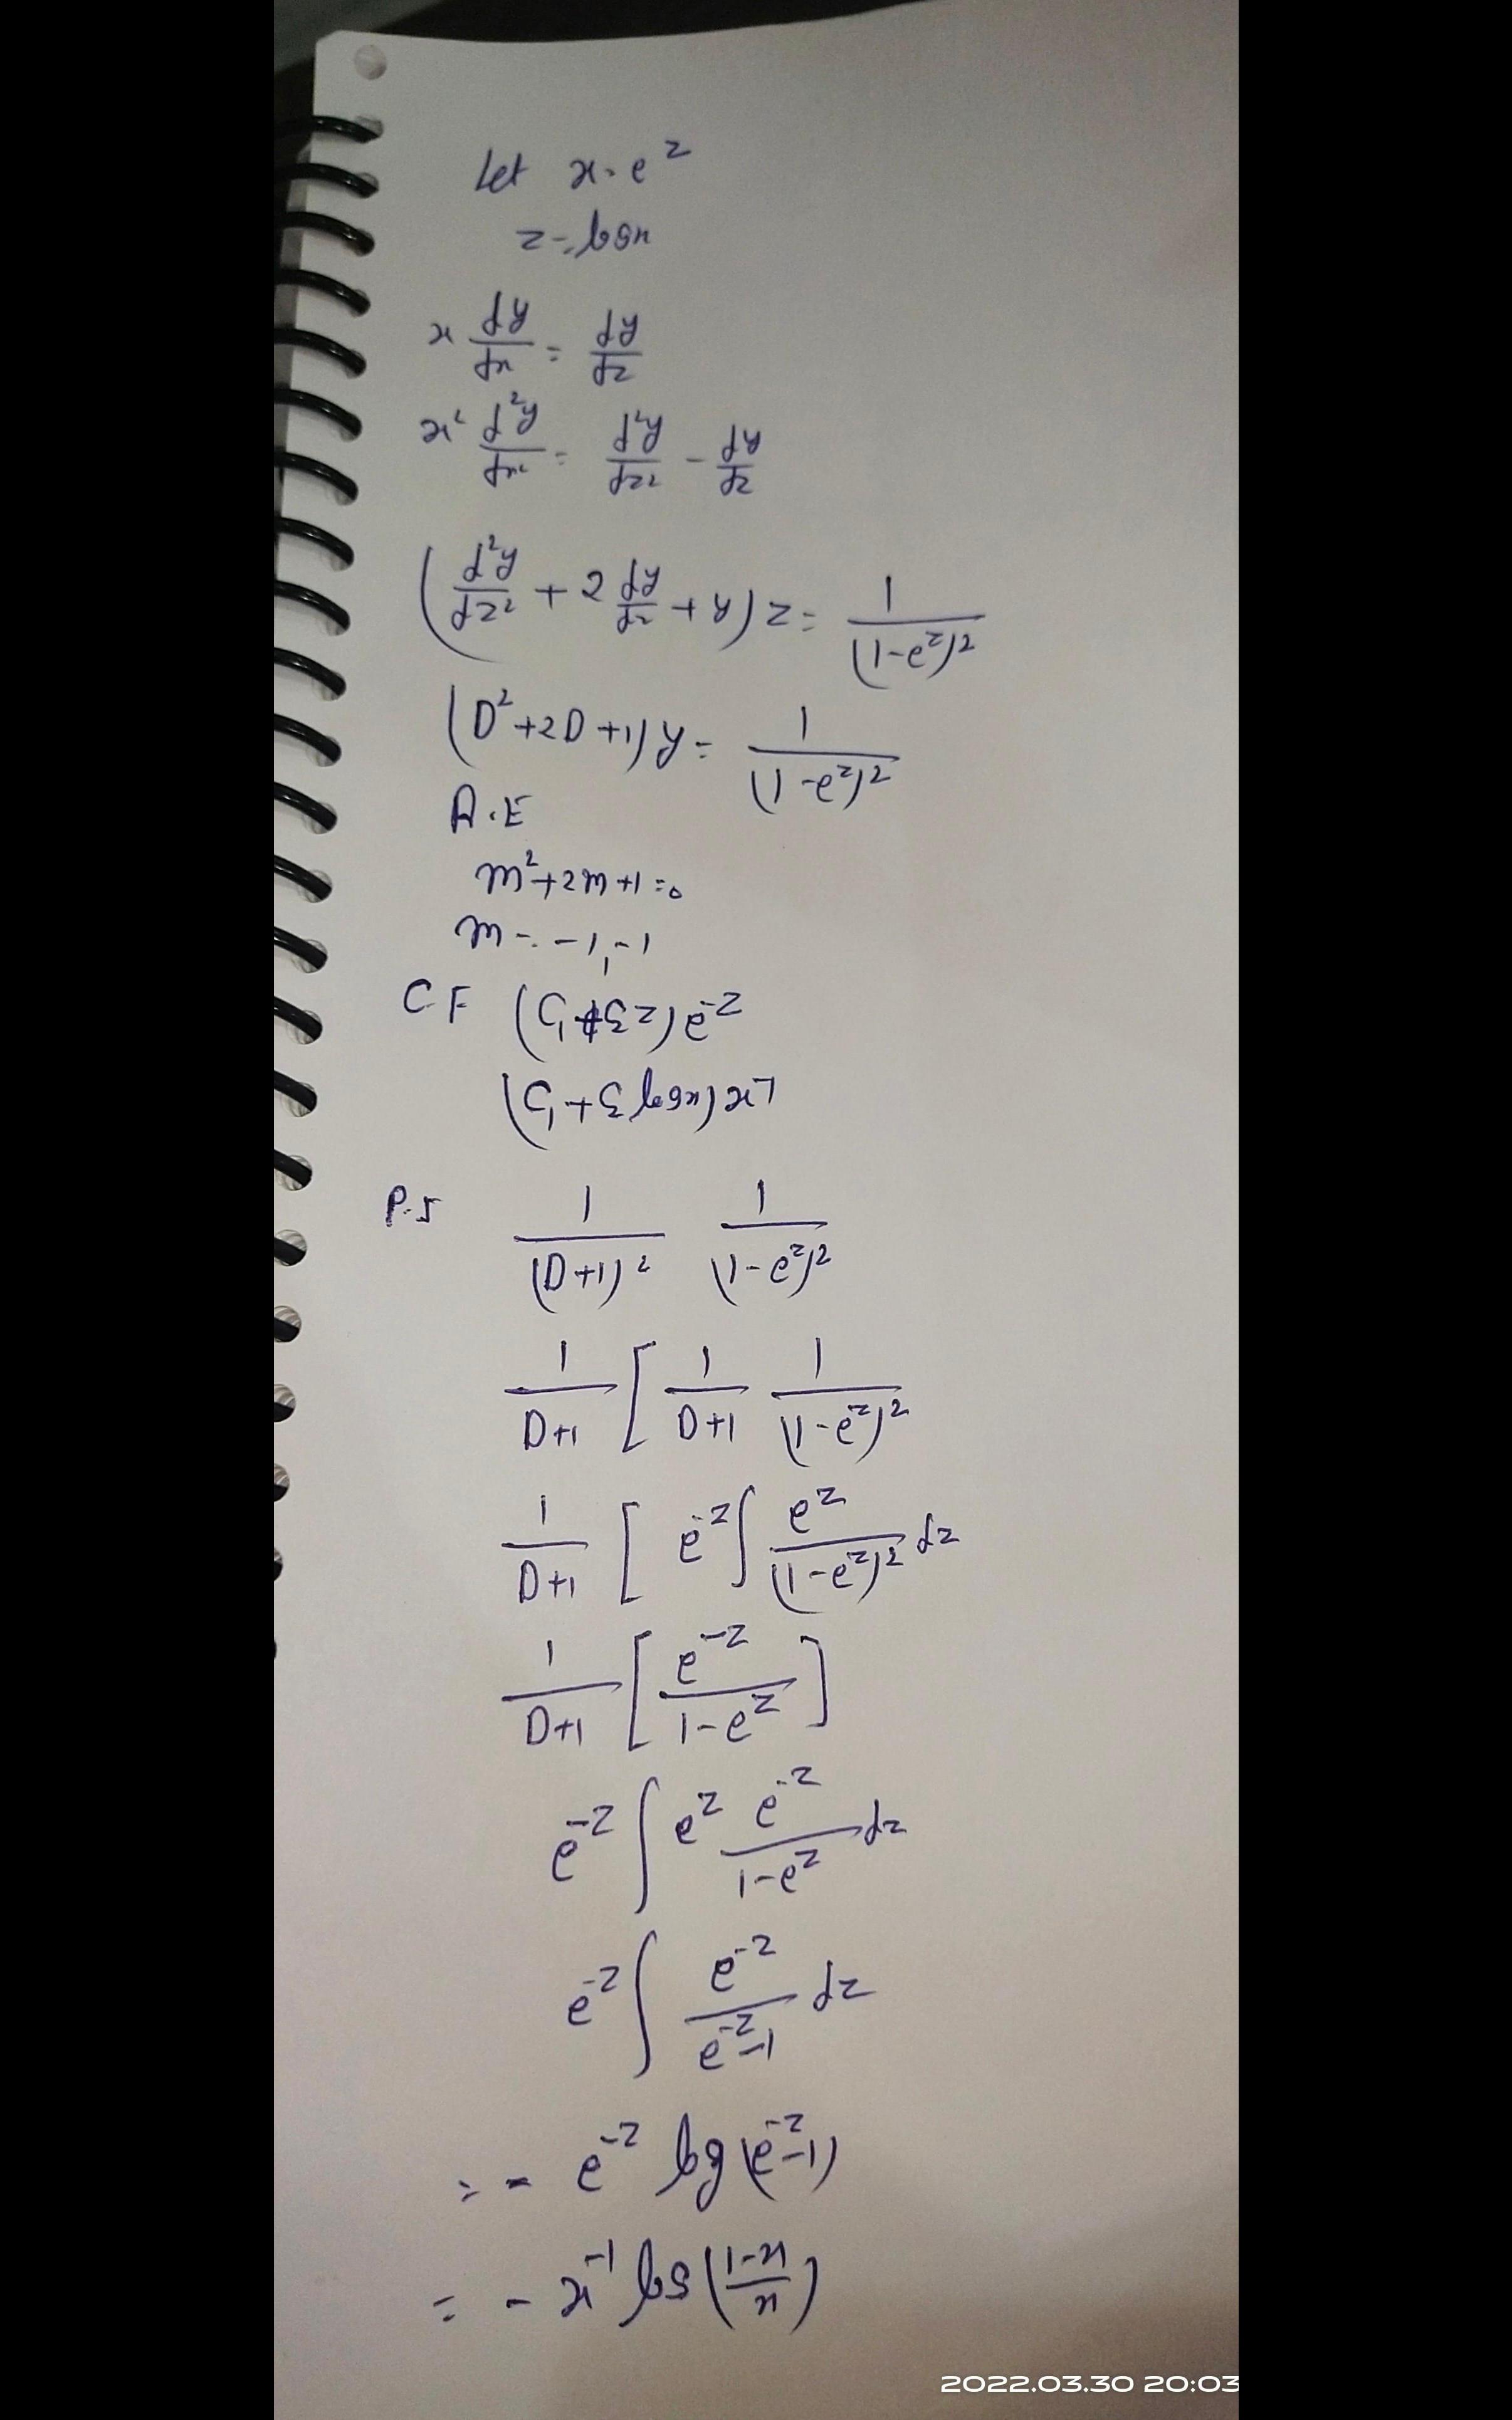 Let x = e^z
z = log x
x dy/dx = dy/dz
x² d²y/dx² = d²y/dz² - dy/dz
(d²y/dz² + 2 dy/dz + y) z = 1/(1-e^z)²
(D²+2D+1) y = 1/(1-e^z)²
A.E
m²+2m+1=0
m = -1, -1
C.F (C₁+C₂z) e^-z
(C₁+C₂ log x) x^-1
P.I 1/(D+1)² 1/(1-e^z)²
1/D+1 [ 1/D+1 1/(1-e^z)²
1/D+1 [ e^-z ∫ e^z/(1-e^z)² dz
1/D+1 [ e^-z/1-e^z ]
e^-z ∫ e^z e^-z/1-e^z dz
e^-z ∫ e^-z/e^-z-1 dz
= - e^-z log (e^-z-1)
= - x^-1 log (1-x/x)
2022.03.30 20:03